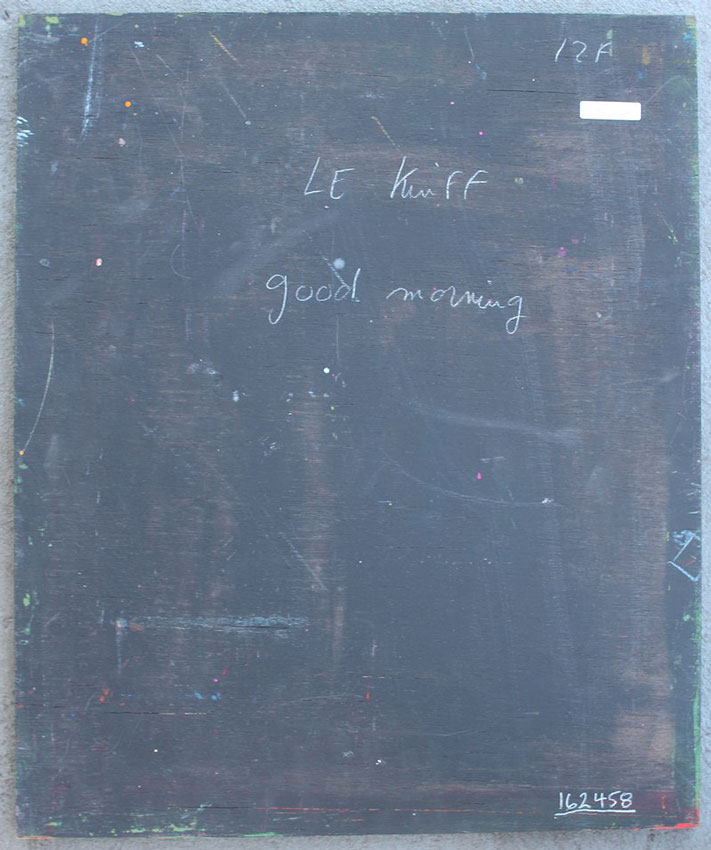 12F
LE Kniff
good morning
162458